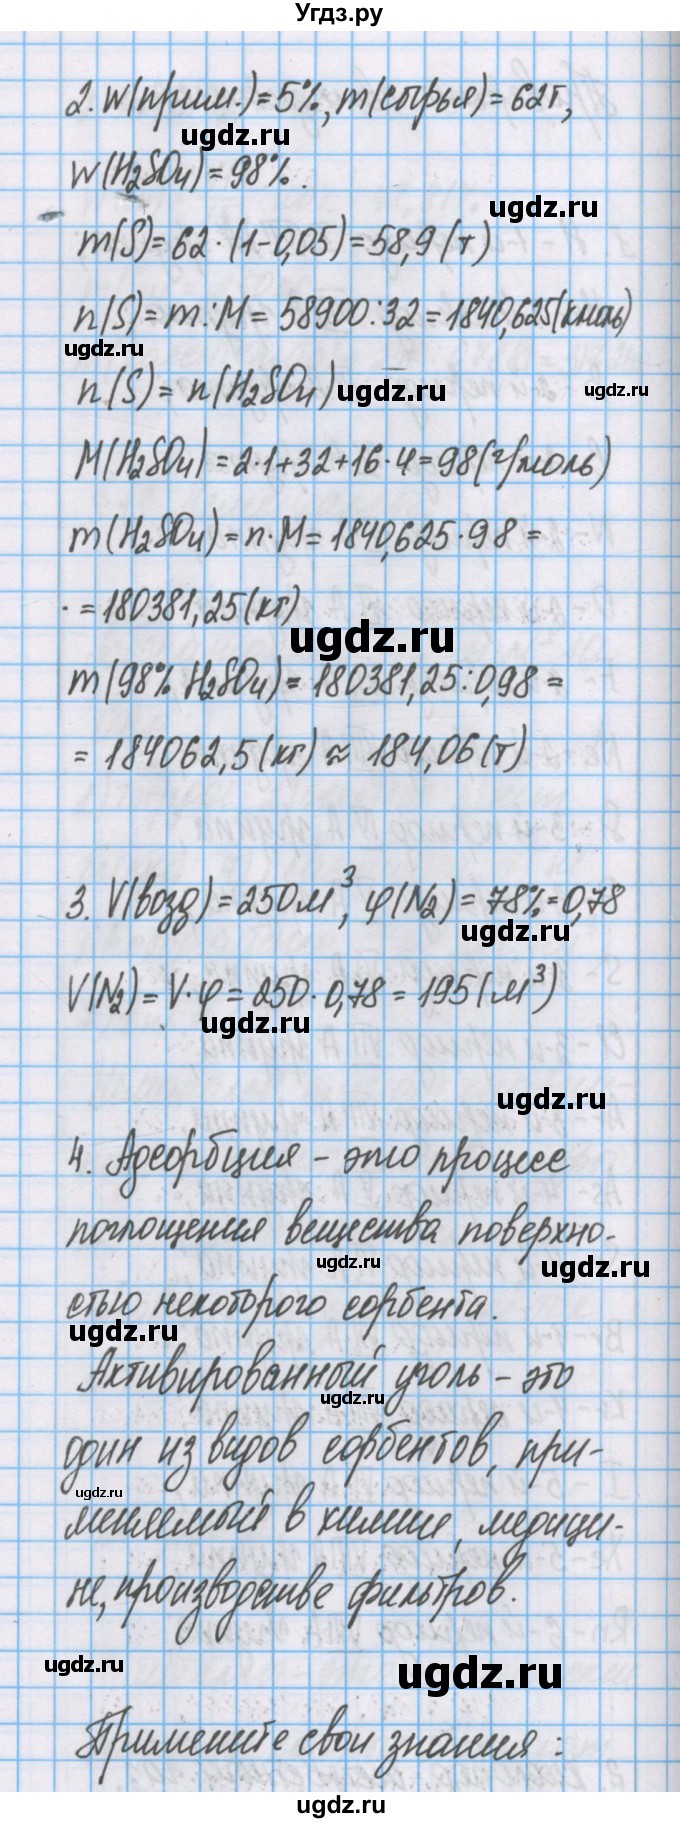 Угдз.ру
2. W(прим.)=5%, m(сырья)=62т,
ugdz.ru
W(H₂SO₄)=98%.
ugdz.ru
m(S)=62·(1-0,05)=58,9(т)
n(S)=m:M=58900:32=1840,625(кмоль)
ugdz.ru
n(S)=n(H₂SO₄)
ugdz.ru
ugdz.ru
M(H₂SO₄)=2·1+32+16·4=98(г/моль)
m(H₂SO₄)=n·M=1840,625·98=
=180381,25(кг)
ugdz.ru
m(98% H₂SO₄)=180381,25:0,98=
=184062,5(кг)≈184,06(т)
3. V(возд)=250м³, φ(N₂)=78%=0,78
ugdz.ru
V(N₂)=V·φ=250·0,78=195(м³)
ugdz.ru
ugdz.ru
4. Адсорбция - это процесс
поглощения вещества поверхно-
ugdz.ru
ugdz.ru
стью некоторого сорбента.
ugdz.ru
Активированный уголь - это
ugdz.ru
один из видов сорбентов, при-
ugdz.ru
меняемый в химии, медици-
не, производстве фильтров.
ugdz.ru
ugdz.ru
Примените свои знания:
ugdz.ru